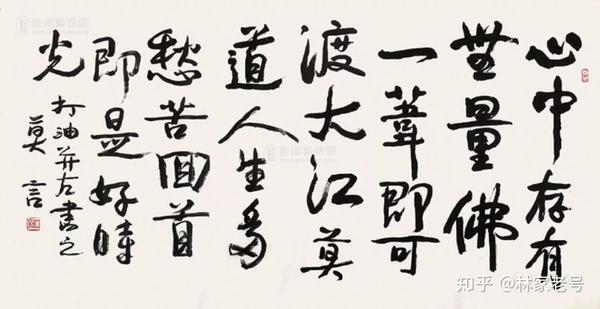 心中存有
無量佛
一葦即可
渡大江莫
道人生多
愁苦回首
即是好時
光
打油并左書之
莫言
知乎 @林家老号